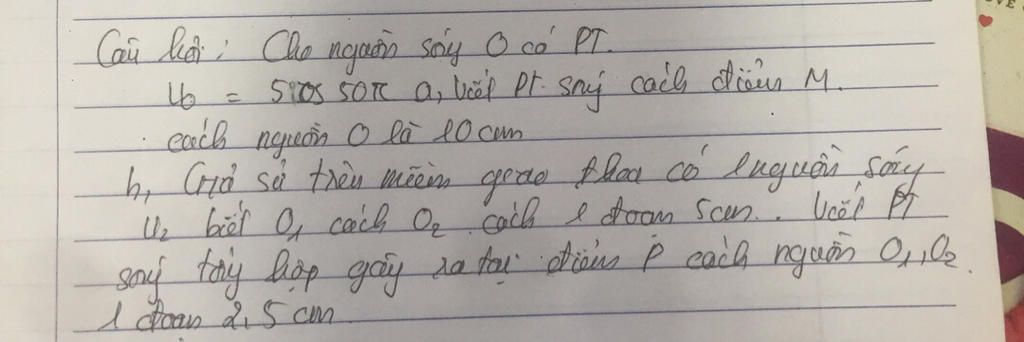 Câu hỏi: Cho nguồn sóng O có PT.
u₀ = 5cos 50π a, Viết PT sóng cách điểm M.
cách nguồn O là 10cm
b, Giả sử trên miền giao thoa có 1nguồn sóng
U₂ biết O₁ cách O₂ cách 1 đoạn 5cm.. Viết PT
sóng tổng hợp gây ra tại điểm P cách nguồn O₁,O₂
1 đoạn 2,5 cm